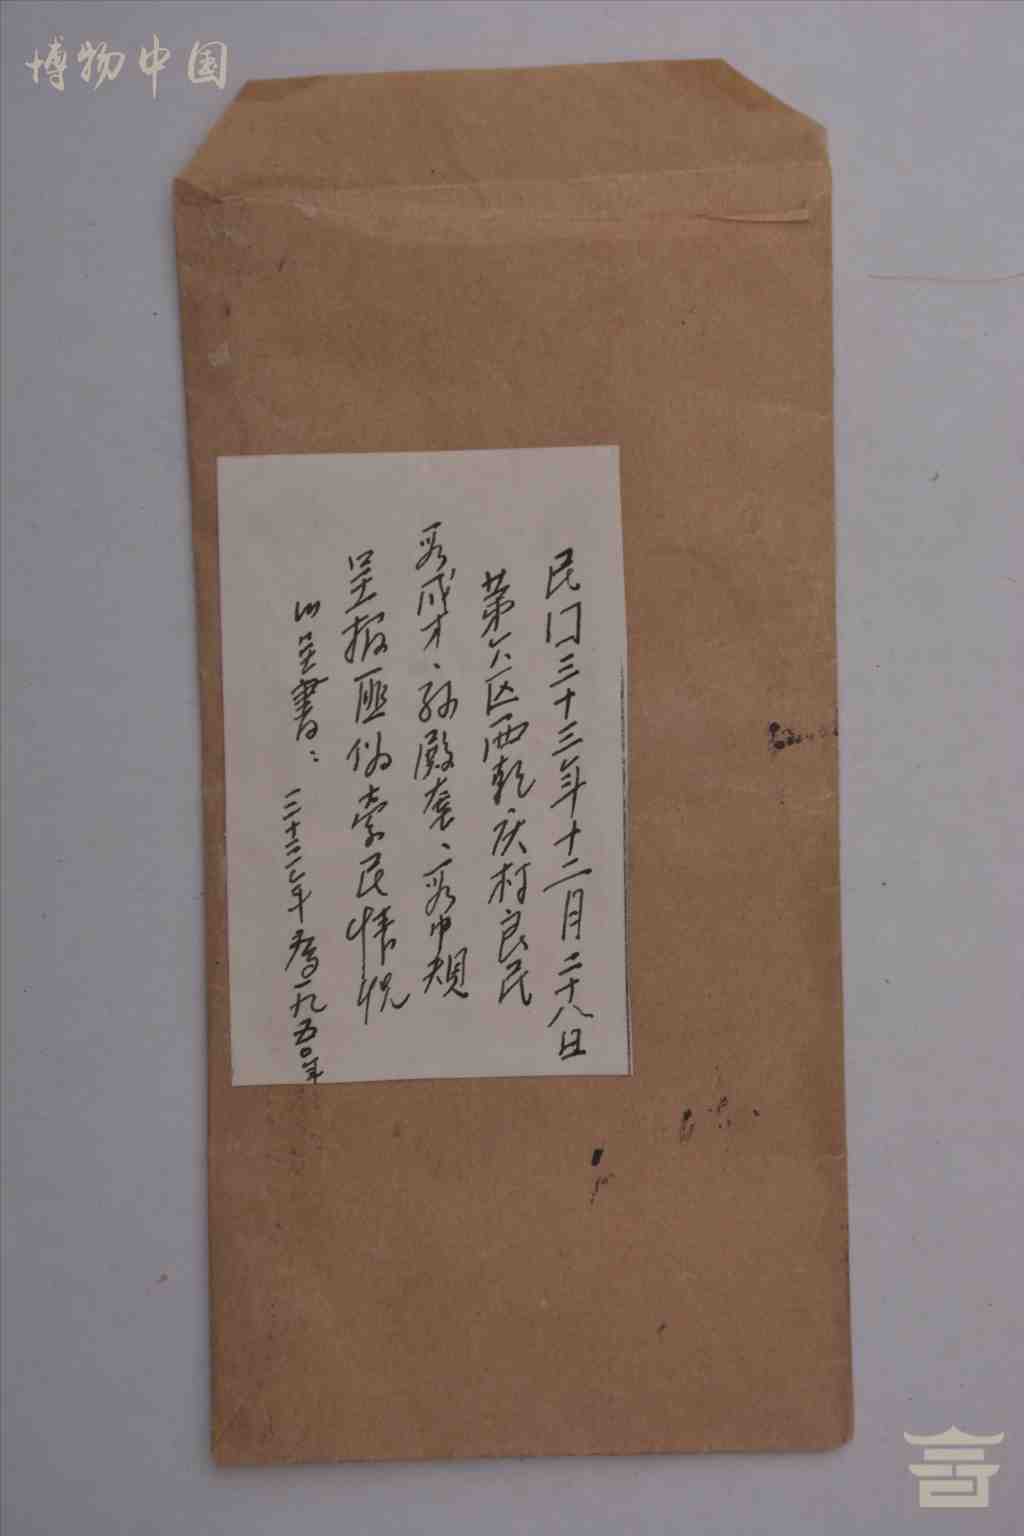 博物中国
民囗三十三年十二月二十八日
第六区西乾庆村良民
成才、孙殿奎、中规
呈报匪伪害民情况
呈书:三十三年 为一九五〇年